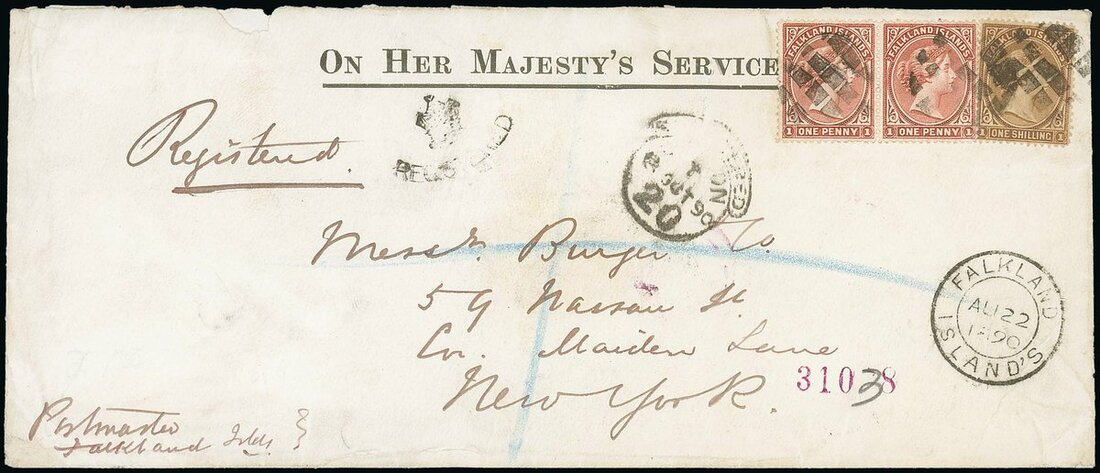 ON HER MAJESTY'S SERVICE
FALKLAND ISLANDS
1 ONE PENNY 1
FALKLAND ISLANDS
1 ONE PENNY 1
1 ONE SHILLING 1
Registered.
REGISTERED
OCT 90
20
Messrs. Burger Co.
59 Nassau St.
Cor. Maiden Lane
New York.
31038
3
FALKLAND
AU 22
1890
ISLAND'S
Postmaster
Falkland Islds.